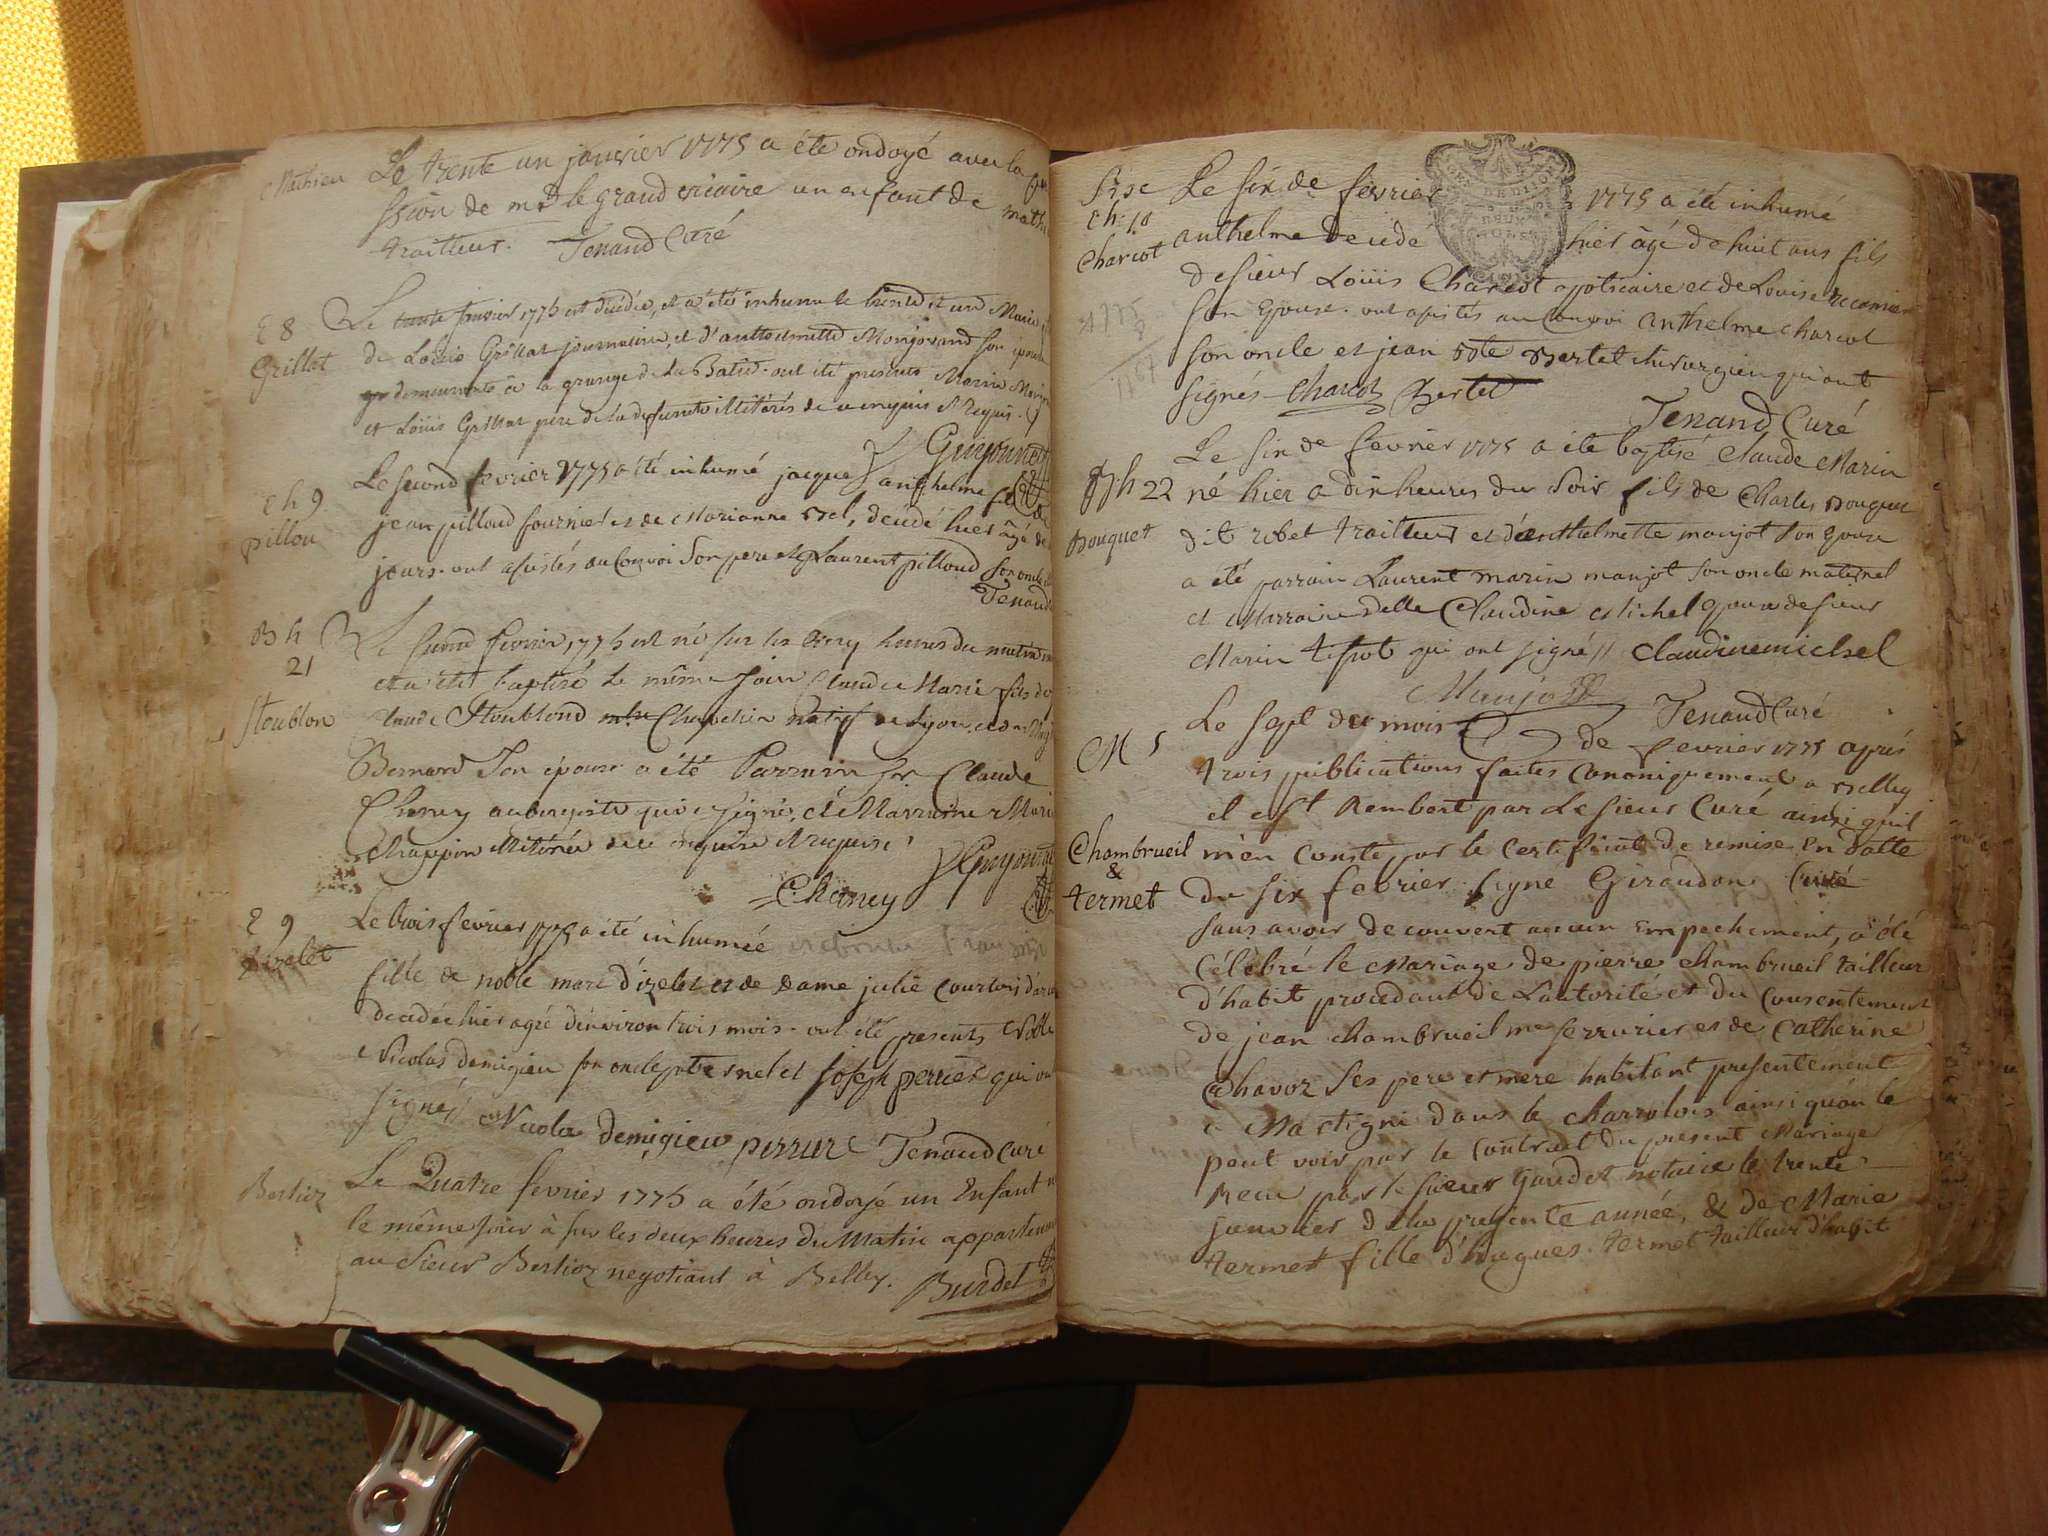 Mathieu
Le trente un janvier 1775 a été ondoyé avec la
ssion de mr le grand vicaire un enfant de math
traitteur. Tenand Curé
E 8
Grillet
Le trente janvier 1775 est décédée, et a été inhumé le trente et un Marie
de Loüis Grillat journalier, et d'anthelmette son épouse
demeurante à la grange de la Batie. ont été presents Marin
et Loüis Grillat pere de la defunte illitérés de ce enquis & Requis.
Guyonnet
Ch 9
pillou
Le second fevrier 1775 a été inhumé jacque anthelme fils de
jean pilloud fournier et de Marianne décédé hier âgé de
jours. ont assistés au Convoi son pere et Laurent pilloud son oncle
Tenand
B h
21
Stoublon
Le second fevrier 1775 est né sur les cinq heures du matin
et a été baptisé le même jour Claude Marie fils de
laude Stoublond Chapelier natif de Lyon, et de
Bernard son épouse a été Parrain sr Claude
Chaney aubergiste qui a signé, et Marraine Marie
Chappon illitérée de ce enquise & requise.
Guyonnet
C. Chaney
E 9
dizelet
Le trois fevrier 1775 a été inhumée
fille de noble marc d'izelet et de dame julie courtois d'
decedée hier agée d'environ trois mois. ont été presents Noble
Nicolas demigieu son oncle paternel et joseph perrier qui ont
signés Nicolas demigieu perrier Tenand Curé
Berlioz
Le Quatre fevrier 1775 a été ondoyé un Enfant n
le même jour à sur les deux heures du Matin appartenant
au Sieur Berlioz negotiant à Belley. Burdet
Ch. 10
Charcot
Le six de fevrier 1775 a été inhumé
anthelme decedé hier âgé de huit ans fils
de sieur Loüis Charcot apoticaire et de Louise recamier
son Epouse. ont assistés au Convoi anthelme charcot
son oncle et jean bte Bertet chirurgien qui ont
signés Charcot Bertet
Tenand Curé
Bh 22
Bouquet
Le six de fevrier 1775 a été baptisé Claude Marin
né hier a dix heures du soir fils de Charles Bouquet
dit rebet traitteur et d'enthelmette manjot son Epouse
a été parrain Laurent marin manjot son oncle maternel
et Marraine delle Claudine Michel Epouse de sieur
Marin tissot qui ont signé // Claudine michel
Manjott Tenand Curé
M 5
Chambrueil
&
termet
Le sept du mois de fevrier 1775 aprés
trois publications faites canoniquement a Belley
et a St Rembert par le sieur Curé ainsi quil
m'en conste par le certificat de remise en datte
du six fevrier signé Giraudon Curé
sans avoir decouvert aucun Empechement, a été
célébré le Mariage de pierre chambrueil tailleur
d'habit procedant de L'autorité et du Consentement
de jean chambrueil me serrurier et de Catherine
Chavoz ses pere et mere habitant presentement
a Martigni dans le charrolois ainsi qu'on le
peut voir par le Contract du present Mariage
Recu par le sieur Gaudet notaire le trente
janvier de la presente année, & de Marie
termet fille d'hugues termet tailleur d'habit